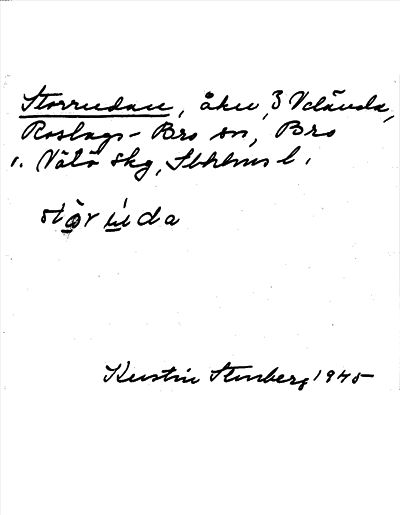 Storrudan, åker, 3 Välända,
Roslags-Bro sn, Bro
o. Vätö skg, Sthlms l.
stòrúda
Kerstin Stenberg 1945